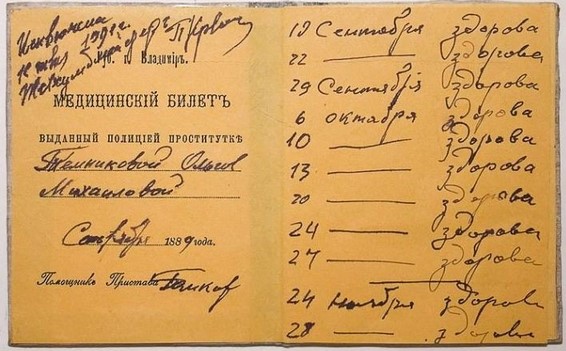 г. Владиміръ.
МЕДИЦИНСКІЙ БИЛЕТЪ
ВЫДАННЫЙ ПОЛИЦІЕЙ ПРОСТИТУТКѢ
Ольгѣ
Михаиловой
Сентября 1889 года.
Помощникъ Пристава
19 Сентября здорова
22 — здорова
29 Сентября здорова
6 октября здорова
10 — здорова
13 — здорова
20 — здорова
24 — здорова
27 — здорова
24 ноября здорова
28 — здорова